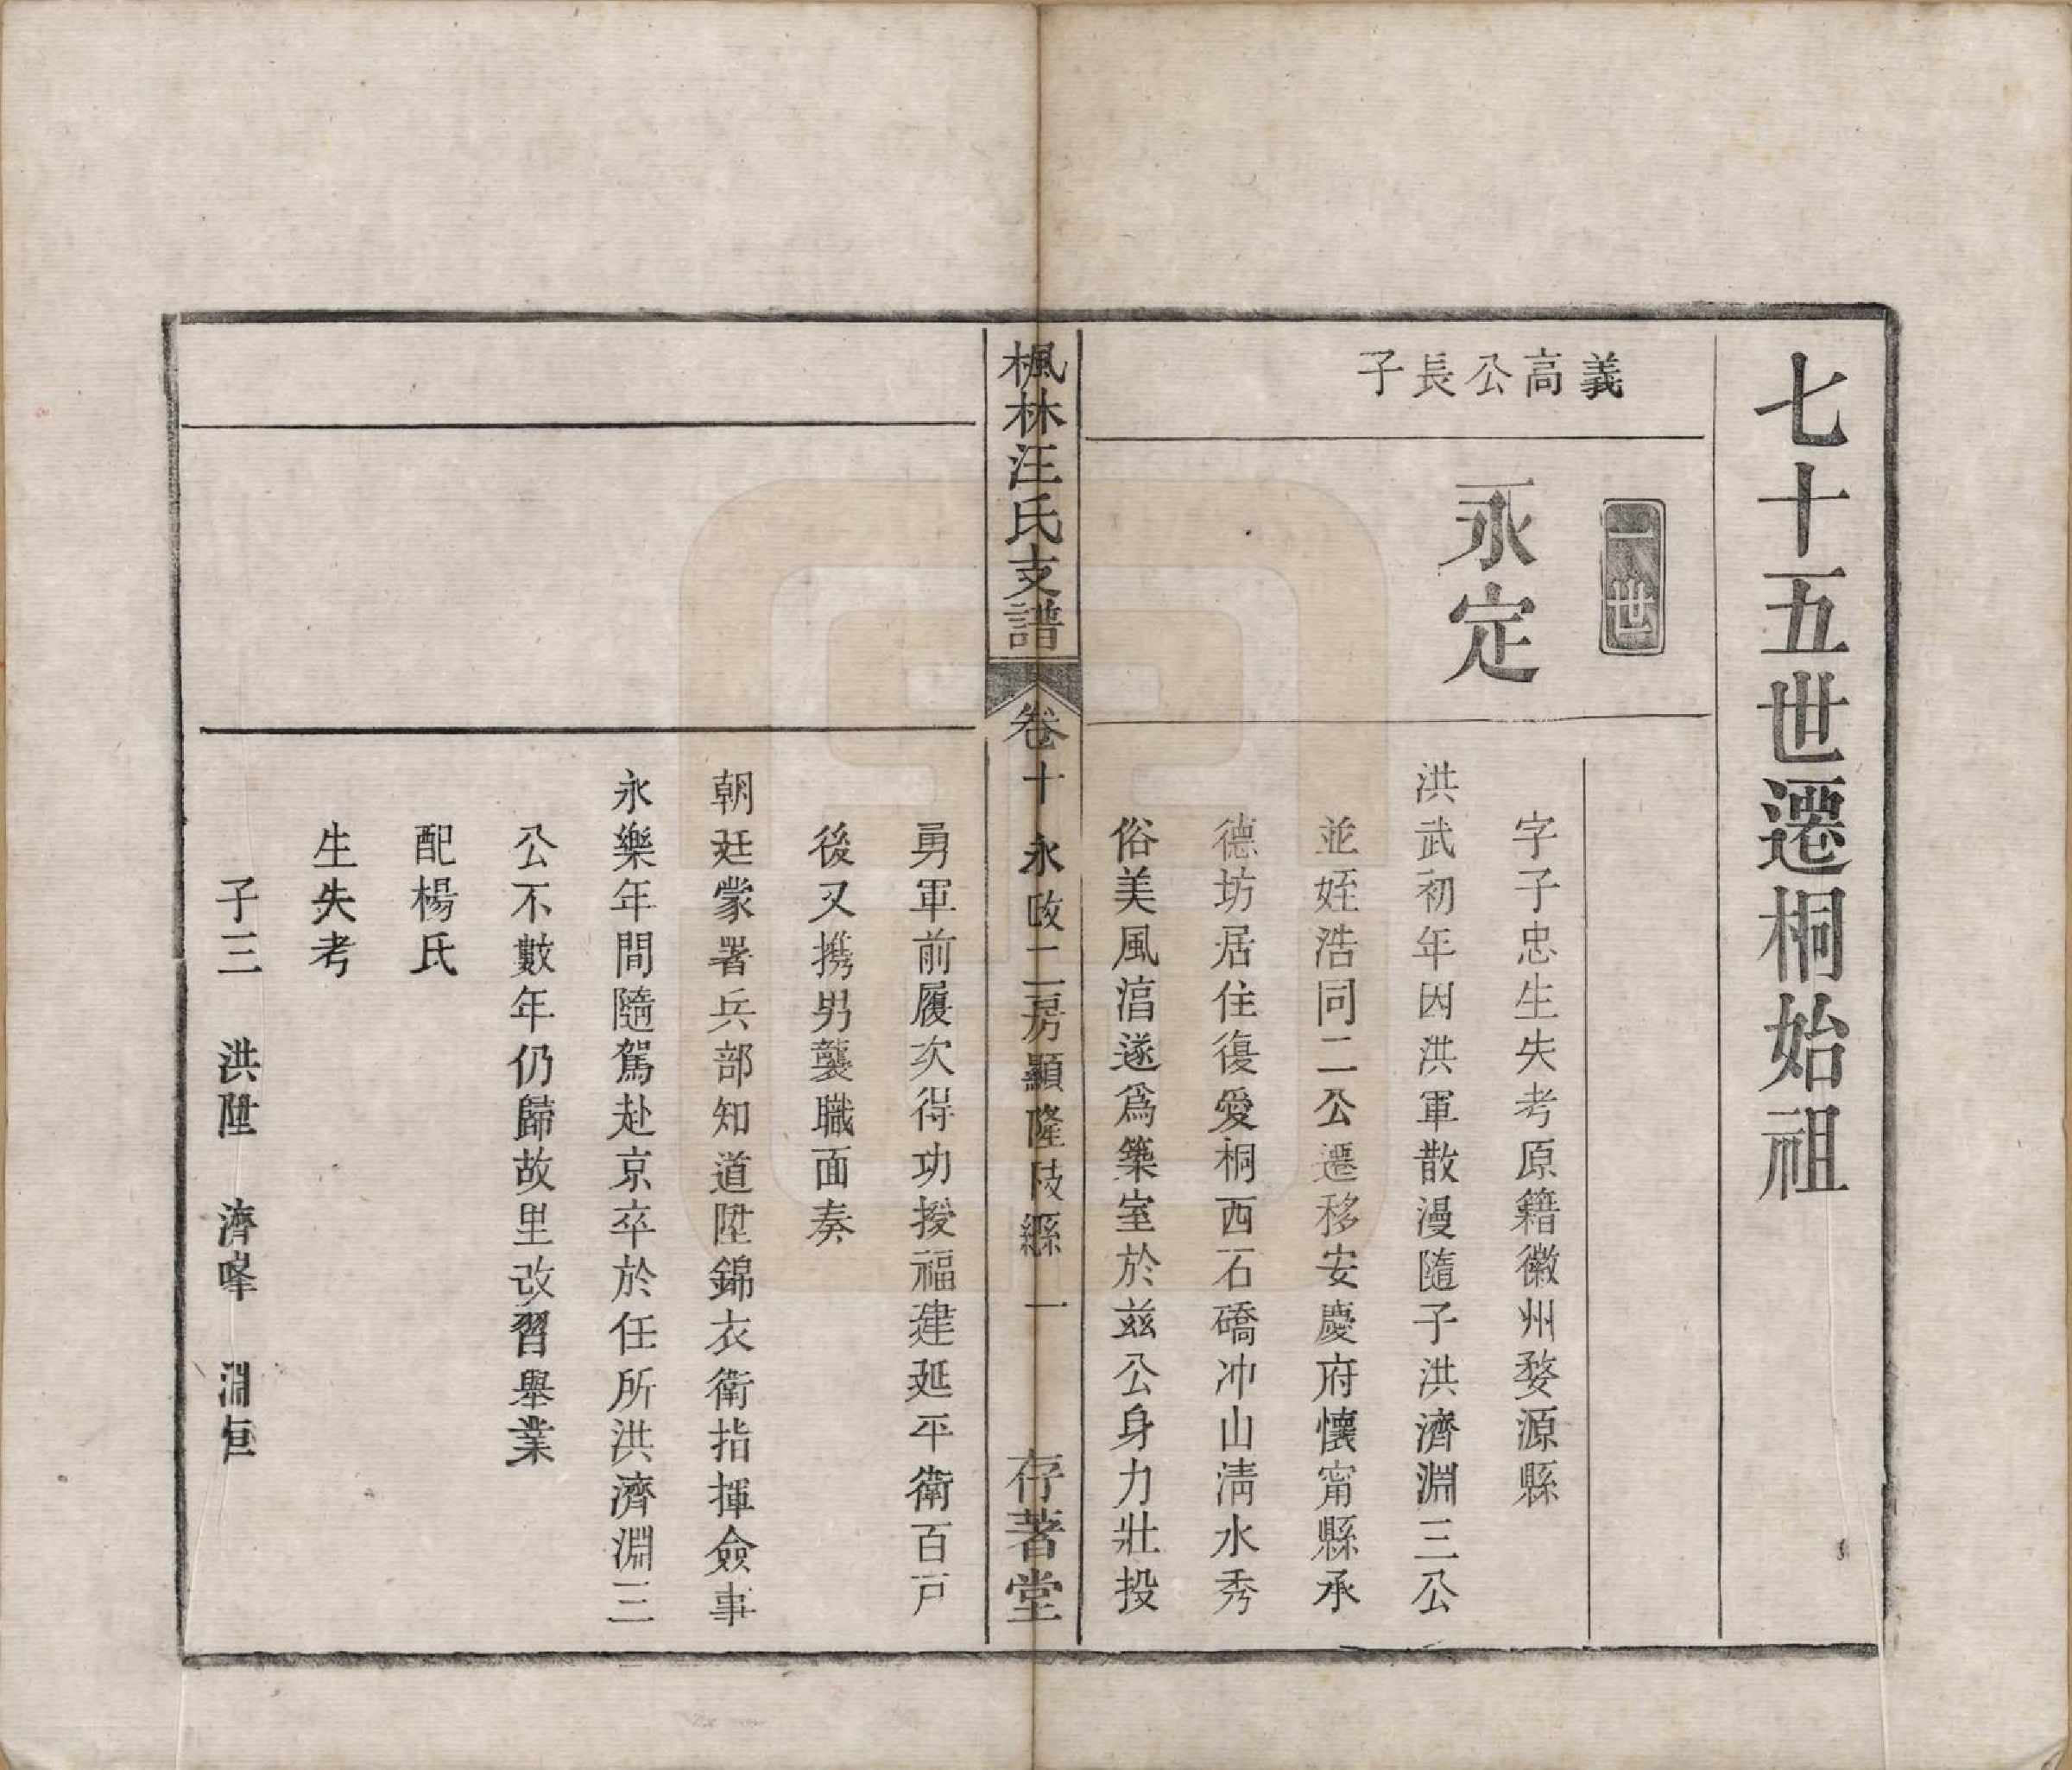 七十五世遷桐始祖
義高公長子
一世
永定
字子忠生失考原籍徽州婺源縣
洪武初年因洪軍散漫隨子洪濟淵三公
並姪浩同二公遷移安慶府懷甯縣承
德坊居住復愛桐西石礄冲山淸水秀
俗美風湻遂爲築室於兹公身力壯投
楓林汪氏支譜
卷十
永政二房顯隆歧縣
一
存著堂
勇軍前履次得功授福建延平衛百戸
後又携男襲職面奏
朝廷蒙署兵部知道陞錦衣衛指揮僉事
永樂年間隨駕赴京卒於任所洪濟淵三
公不數年仍歸故里改習舉業
配楊氏
生失考
子三 洪陞 濟峰 淵恒